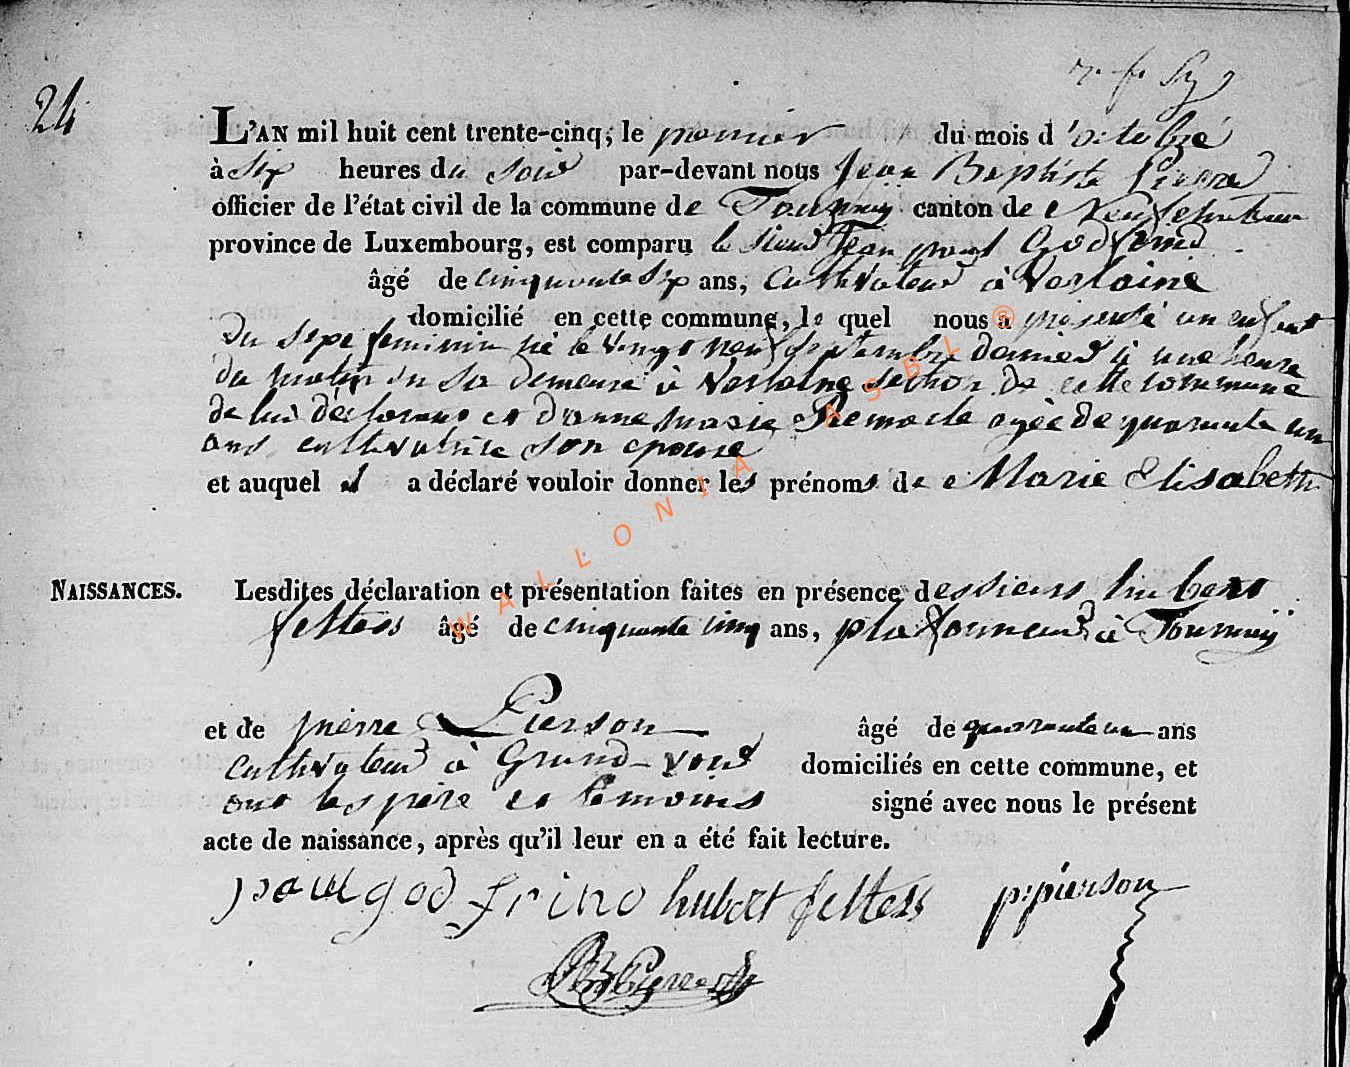 24
L'AN mil huit cent trente-cinq, le premier du mois d'octobre
à six heures du soir par-devant nous Jean Baptiste Pierre
officier de l'état civil de la commune de Tournay canton de Neufchateau
province de Luxembourg, est comparu le sieur Jean paul Godfrind
âgé de cinquante six ans, cultivateur à Verlaine
domicilié en cette commune, le quel nous a présenté un enfant
du sexe feminin né le vingt neuf septembre dernier à une heure
du matin en sa demeure à Verlaine section de cette commune
de lui déclarant et d'anne marie Remacle agée de quarante un
ans cultivatrice son epouse
et auquel il a déclaré vouloir donner les prénoms de Marie Elisabeth
NAISSANCES. Lesdites déclaration et présentation faites en présence des sieurs hubert
feltess âgé de cinquante cinq ans, plafonneur à Tournay
et de pierre Pierson âgé de quarante un ans
cultivateur à Grand-voir domiciliés en cette commune, et
ont les père et temoins signé avec nous le présent
acte de naissance, après qu'il leur en a été fait lecture.
paul godfrind hubert feltess p: pierson
JB Pierre
WALLONIA ASBL ®